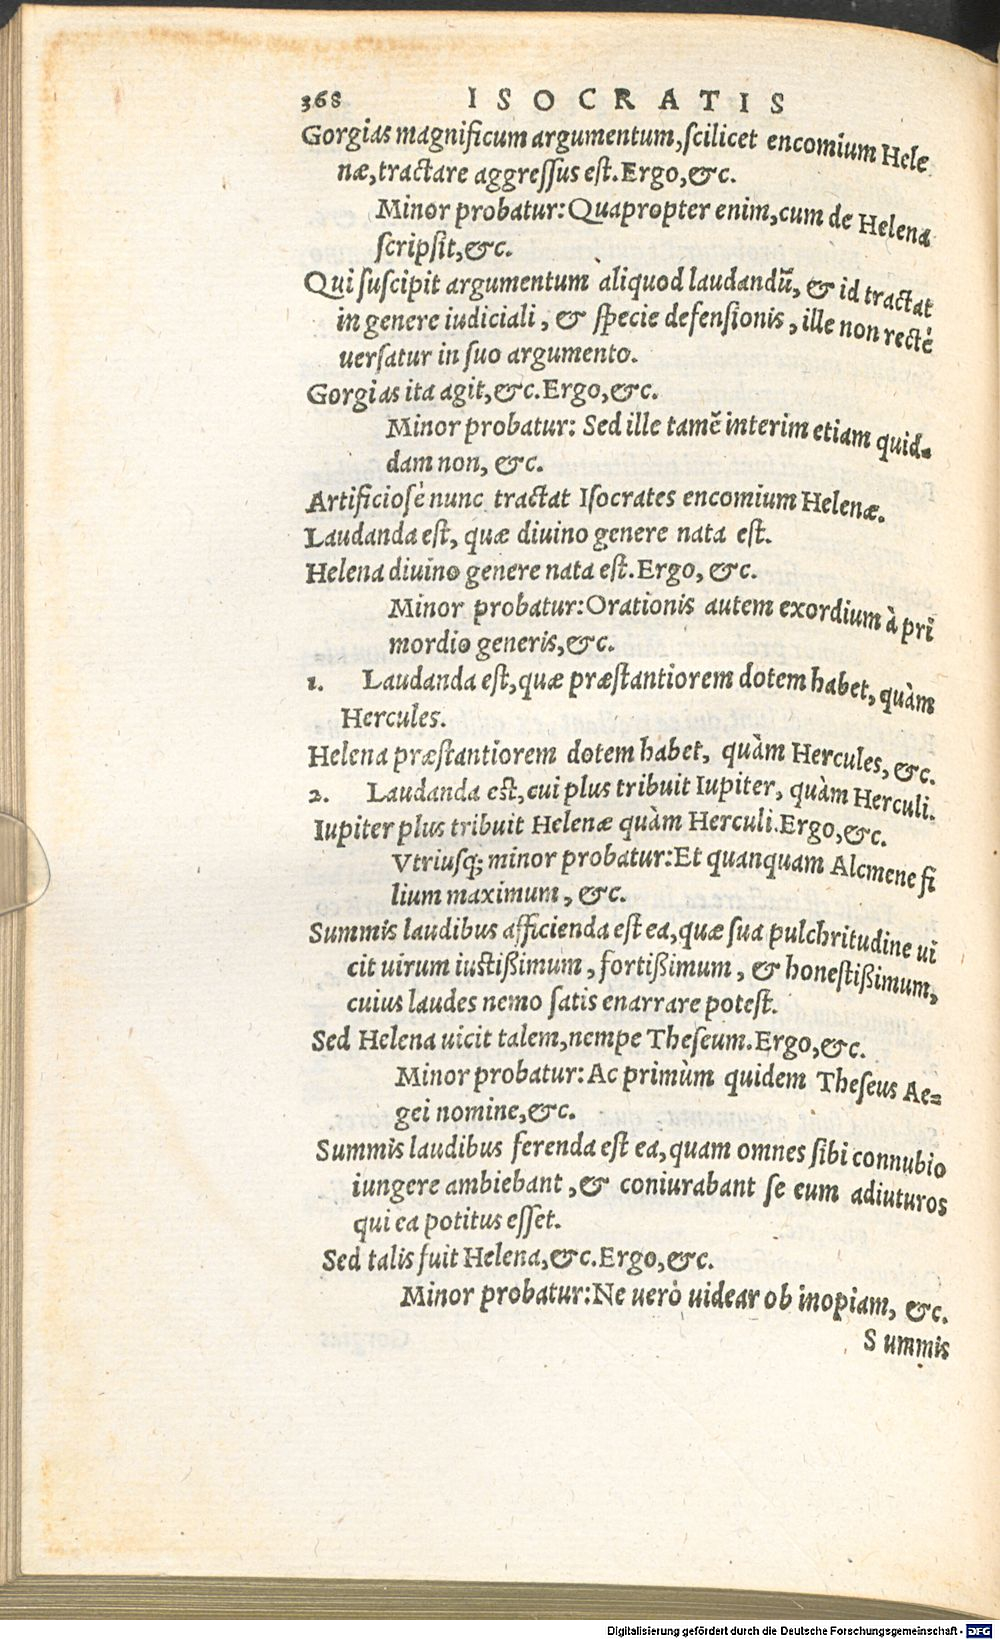 368 ISOCRATIS
Gorgias magnificum argumentum, scilicet encomium Hele
næ, tractare aggressus est. Ergo, &c.
Minor probatur: Quapropter enim, cum de Helena
scripsit, &c.
Qui suscipit argumentum aliquod laudandũ, & id tractat
in genere iudiciali, & specie defensionis, ille non rectè
uersatur in suo argumento.
Gorgias ita agit, &c. Ergo, &c.
Minor probatur: Sed ille tamẽ interim etiam quid-
dam non, &c.
Artificiosè nunc tractat Isocrates encomium Helenæ.
Laudanda est, quæ diuino genere nata est.
Helena diuino genere nata est. Ergo, &c.
Minor probatur: Orationis autem exordium à pri
mordio generis, &c.
1. Laudanda est, quæ præstantiorem dotem habet, quàm
Hercules.
Helena præstantiorem dotem habet, quàm Hercules, &c.
2. Laudanda est, cui plus tribuit Iupiter, quàm Herculi.
Iupiter plus tribuit Helenæ quàm Herculi. Ergo, &c.
Vtriusq; minor probatur: Et quanquam Alcmene fi
lium maximum, &c.
Summis laudibus afficienda est ea, quæ sua pulchritudine ui
cit uirum iustißimum, fortißimum, & honestißimum,
cuius laudes nemo satis enarrare potest.
Sed Helena uicit talem, nempe Theseum. Ergo, &c.
Minor probatur: Ac primùm quidem Theseus Ae-
gei nomine, &c.
Summis laudibus ferenda est ea, quam omnes sibi connubio
iungere ambiebant, & coniurabant se eum adiuturos
qui ea potitus esset.
Sed talis fuit Helena, &c. Ergo, &c.
Minor probatur: Ne uerò uidear ob inopiam, &c.
Summis
Digitalisierung gefördert durch die Deutsche Forschungsgemeinschaft - DFG